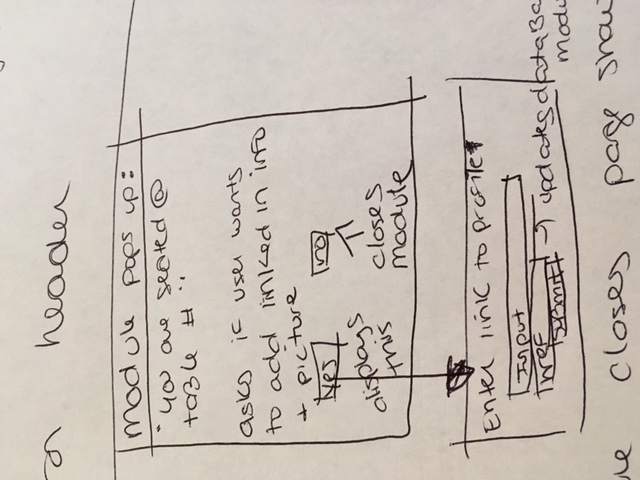 header
module pops up:
"you are seated @
table # "
asks if user wants
to add linked in info
+ picture
yes no
displays
this
closes
module
Enter link to profile
Input
href
submit → updates dataBa
modu
closes page show